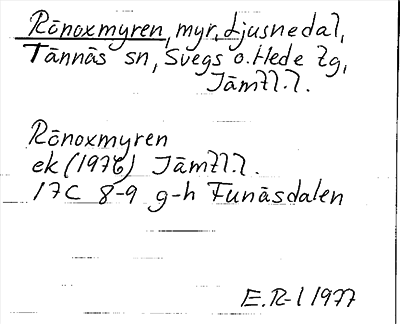 Rönoxmyren, myr, Ljusnedal,
Tännäs sn, Svegs o. Hede tg,
Jämtl. l.
Rönoxmyren
ek (1976) Jämtl. l.
17C 8-9 g-h Funäsdalen
E.R-l 1977